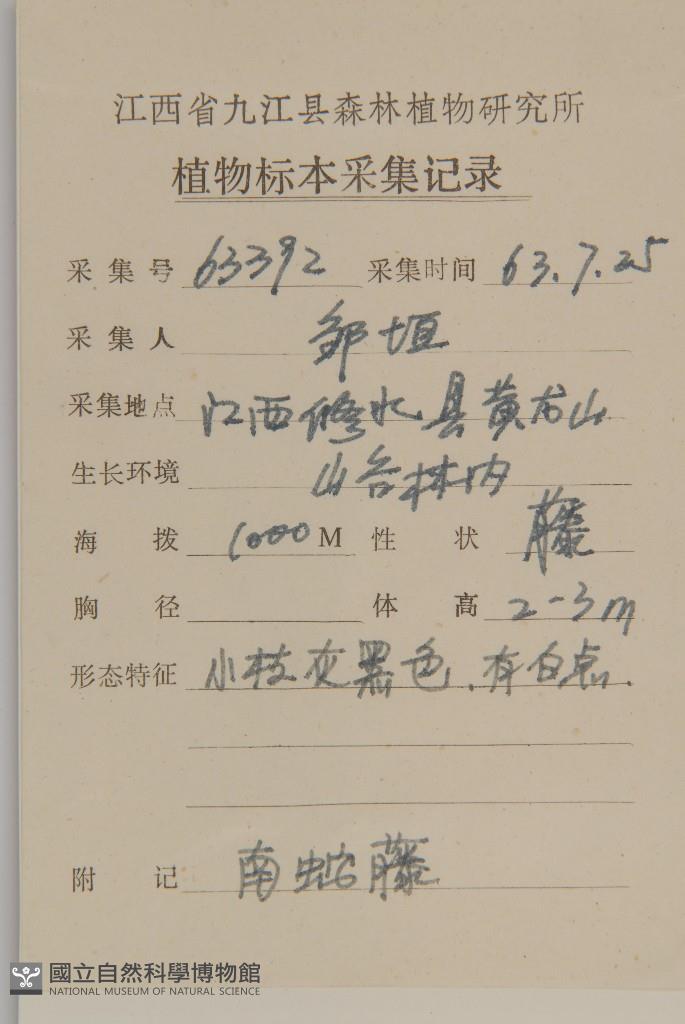 江西省九江县森林植物研究所
植物标本采集记录
采集号 63392 采集时间 63.7.25
采集人 邹垣
采集地点 江西修水县黄龙山
生长环境 山谷林内
海拨 1000 M 性状 藤
胸径 体高 2-3m
形态特征 小枝灰黑色,有白点.
附记 南蛇藤
國立自然科學博物館
NATIONAL MUSEUM OF NATURAL SCIENCE